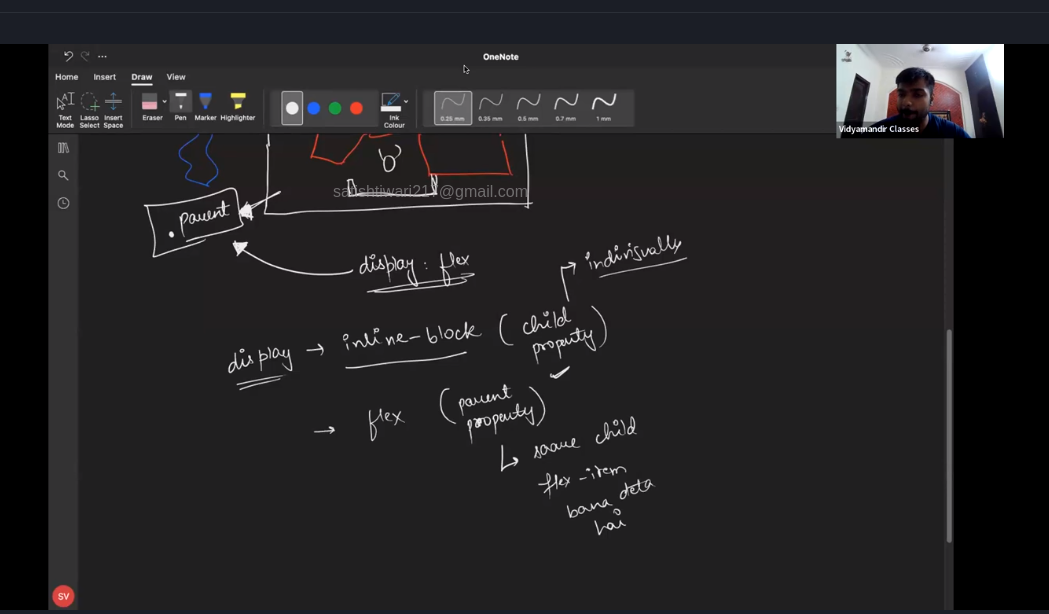 OneNote
Home Insert Draw View
Text Mode
Lasso Select
Insert Space
Eraser
Pen
Marker
Highlighter
Ink Colour
0.25 mm
0.35 mm
0.5 mm
0.7 mm
1 mm
Vidyamandir Classes
'b'
. parent
display : flex
indivisually
display → inline-block (child property)
→ flex (parent property)
saare child
flex-item
bana deta
hai
SV